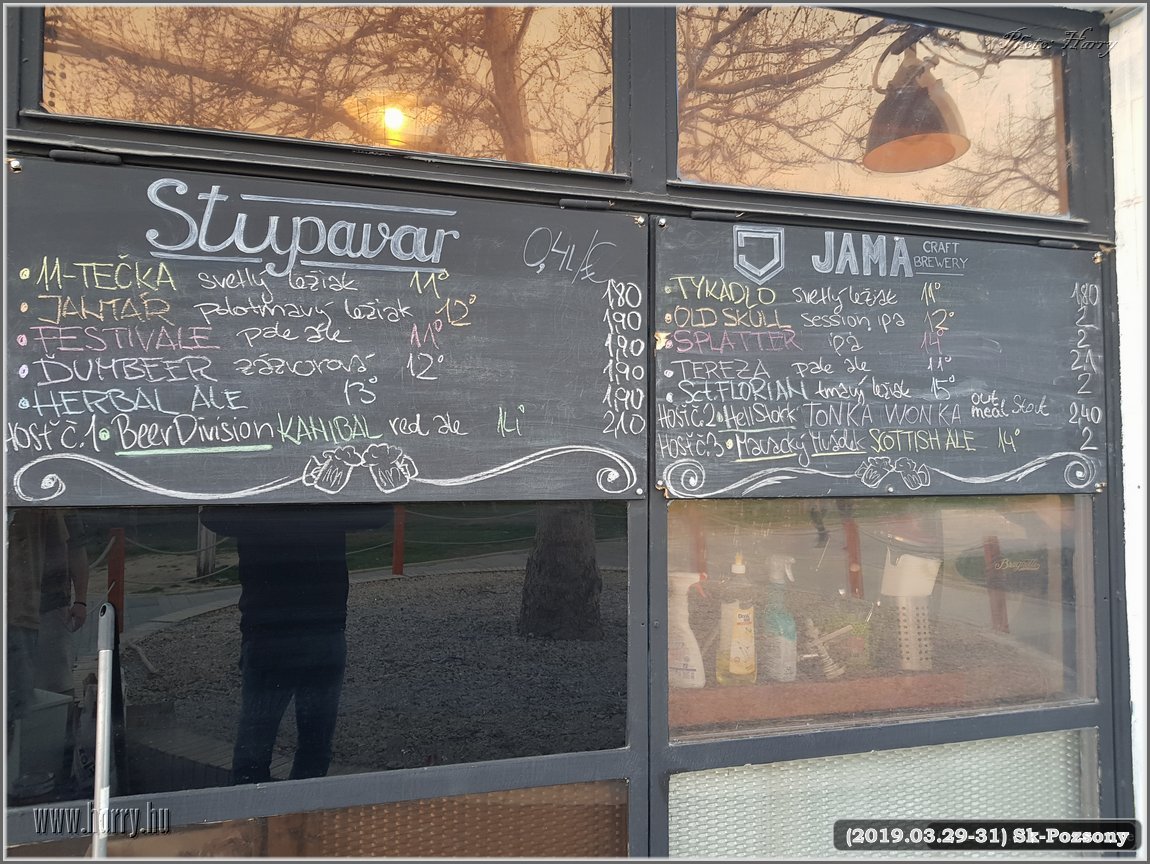 Photo: Harry
Stupavar
0,4L/€
11-TEČKA svetlý ležiak 11° 1,80
JANTÁR polotmavý ležiak 12° 1,90
FESTIVALE pale ale 11° 1,90
ĎUMBEER zázvorová 12° 1,90
HERBAL ALE 13° 1,90
HOSŤ č.1 BeerDivision KANIBAL red ale 14° 2,10
JAMA CRAFT BREWERY
TYKADLO svetlý ležiak 11° 1,80
OLD SKULL session ipa 12° 2
SPLATTER ipa 14° 2
TEREZA pale ale 11° 2,1
SCT.FLORIAN tmavý ležiak 15° 2
HOSŤ č.2 HellStork TONKA WONKA out meal Stout 2,40
HOSŤ č.3 SCOTTISH ALE 14° 2
www.harry.hu
(2019.03.29-31) Sk-Pozsony